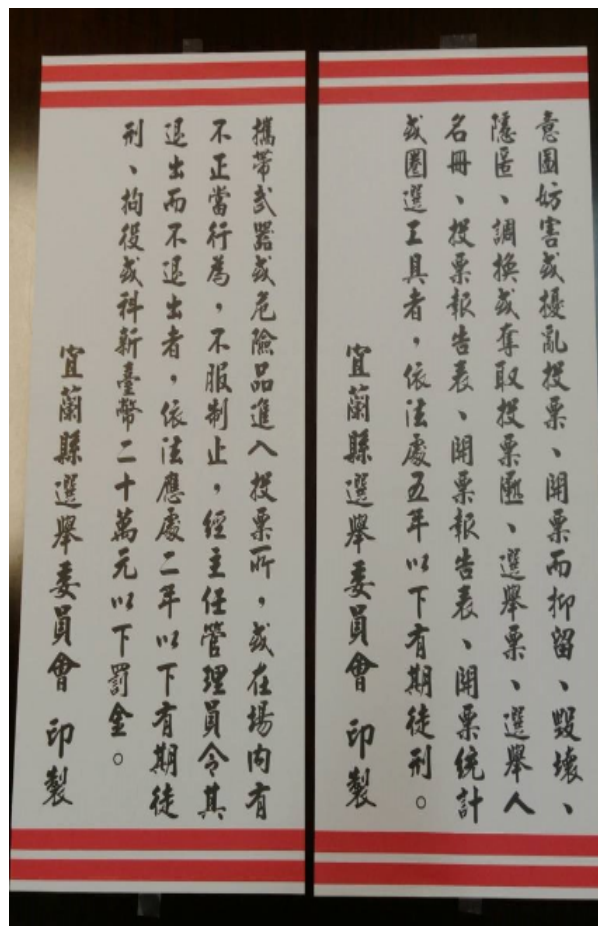 意圖妨害或擾亂投票、開票而抑留、毀壞、
隱匿、調換或奪取投票匭、選舉票、選舉人
名冊、投票報告表、開票報告表、開票統計
或圈選工具者，依法處五年以下有期徒刑。
宜蘭縣選舉委員會 印製
攜帶武器或危險品進入投票所，或在場內有
不正當行為，不服制止，經主任管理員令其
退出而不退出者，依法應處二年以下有期徒
刑、拘役或科新臺幣二十萬元以下罰金。
宜蘭縣選舉委員會 印製